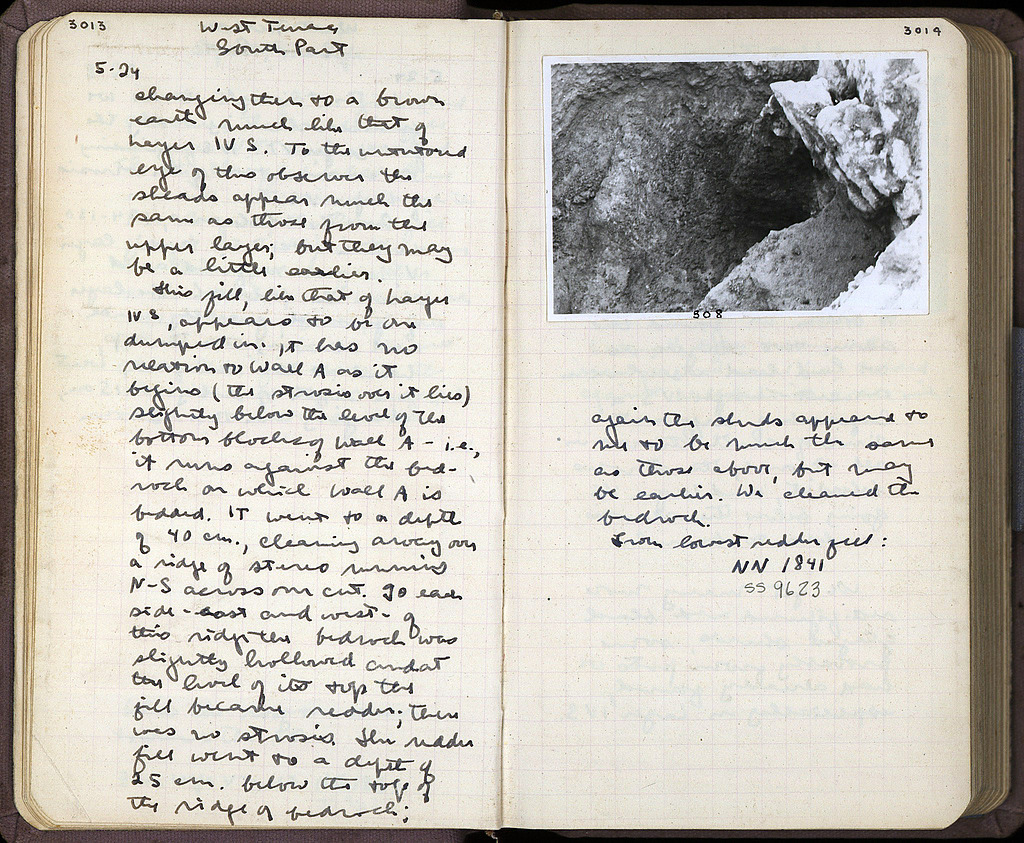 3013
West Terrace
South Part
5-24
changing then to a brown
earth much like that of
Layer IV S. To the untutored
eye of this observer the
sherds appear much the
same as those from the
upper layer; but they may
be a little earlier.
This fill, like that of Layer
IV S, appears to be one
dumped in. It has no
relation to Wall A as it
begins (the strosis over it lies)
slightly below the level of the
bottom blocks of Wall A - i.e.,
it runs against the bed-
rock on which Wall A is
bedded. It went to a depth
of 40 cm., clearing away over
a ridge of stereo running
N-S across our cut. To each
side - east and west - of
this ridge the bedrock was
slightly hollowed and at
the level of its top the
fill became redder; there
was no strosis. The redder
fill went to a depth of
25 cm. below the top of
the ridge of bedrock;
3014
508
again the sherds appeared to
me to be much the same
as those above, but may
be earlier. We cleaned the
bedrock.
From lowest redder fill:
NN 1841
SS 9623